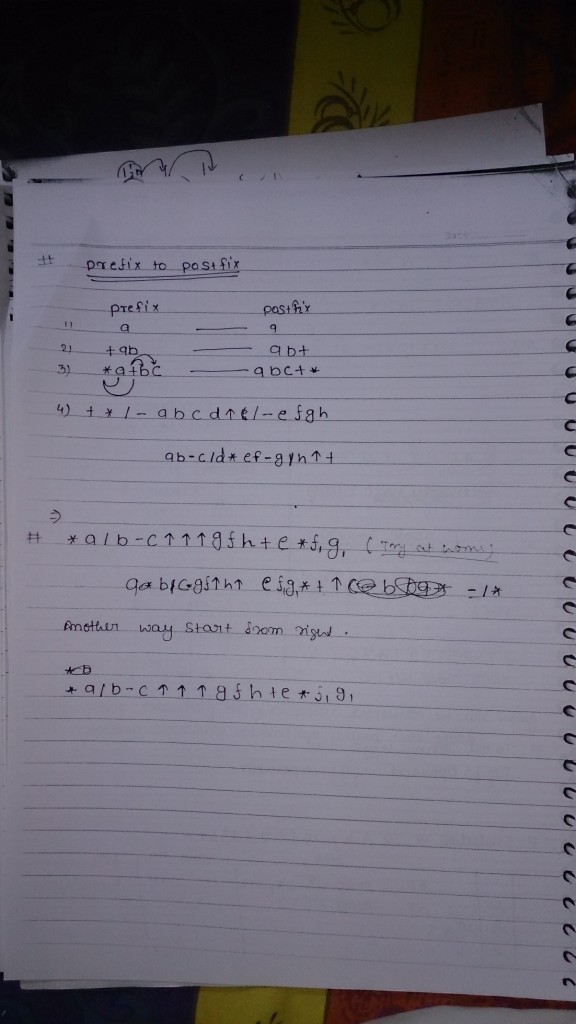 # prefix to postfix
prefix postfix
1) a —— a
2) +ab —— ab+
3) *a+bc —— abc+*
4) + * / - a b c d ↑ / - e f g h
ab-c/d* ef-g/h↑+
⇒
# * a / b - c ↑ ↑ ↑ g f h + e * f₁ g₁ (Try at home)
gf↑h↑ e f₁g₁*+↑ -/*
Another way start from right.
* a / b - c ↑ ↑ ↑ g f h + e * f₁ g₁